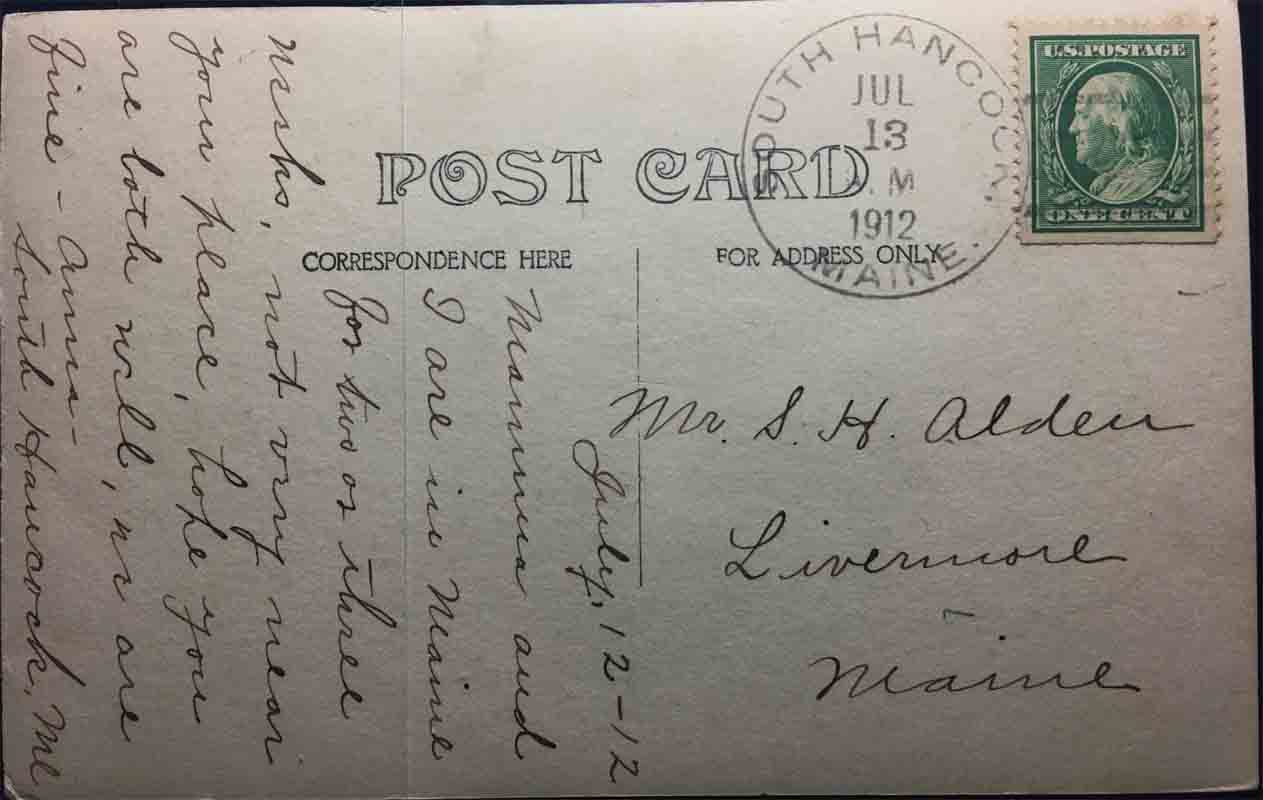 POST CARD
CORRESPONDENCE HERE
FOR ADDRESS ONLY
SOUTH HANCOCK
JUL
13
M
1912
MAINE.
U.S. POSTAGE
ONE CENT
July, 12-12
Mamma and
I are in Maine
for two or three
weeks, not very near
your place, hope you
are both well, we are
fine - Anna -
South Hancock, Me
Mr. S. H. Alden
Livermore
Maine